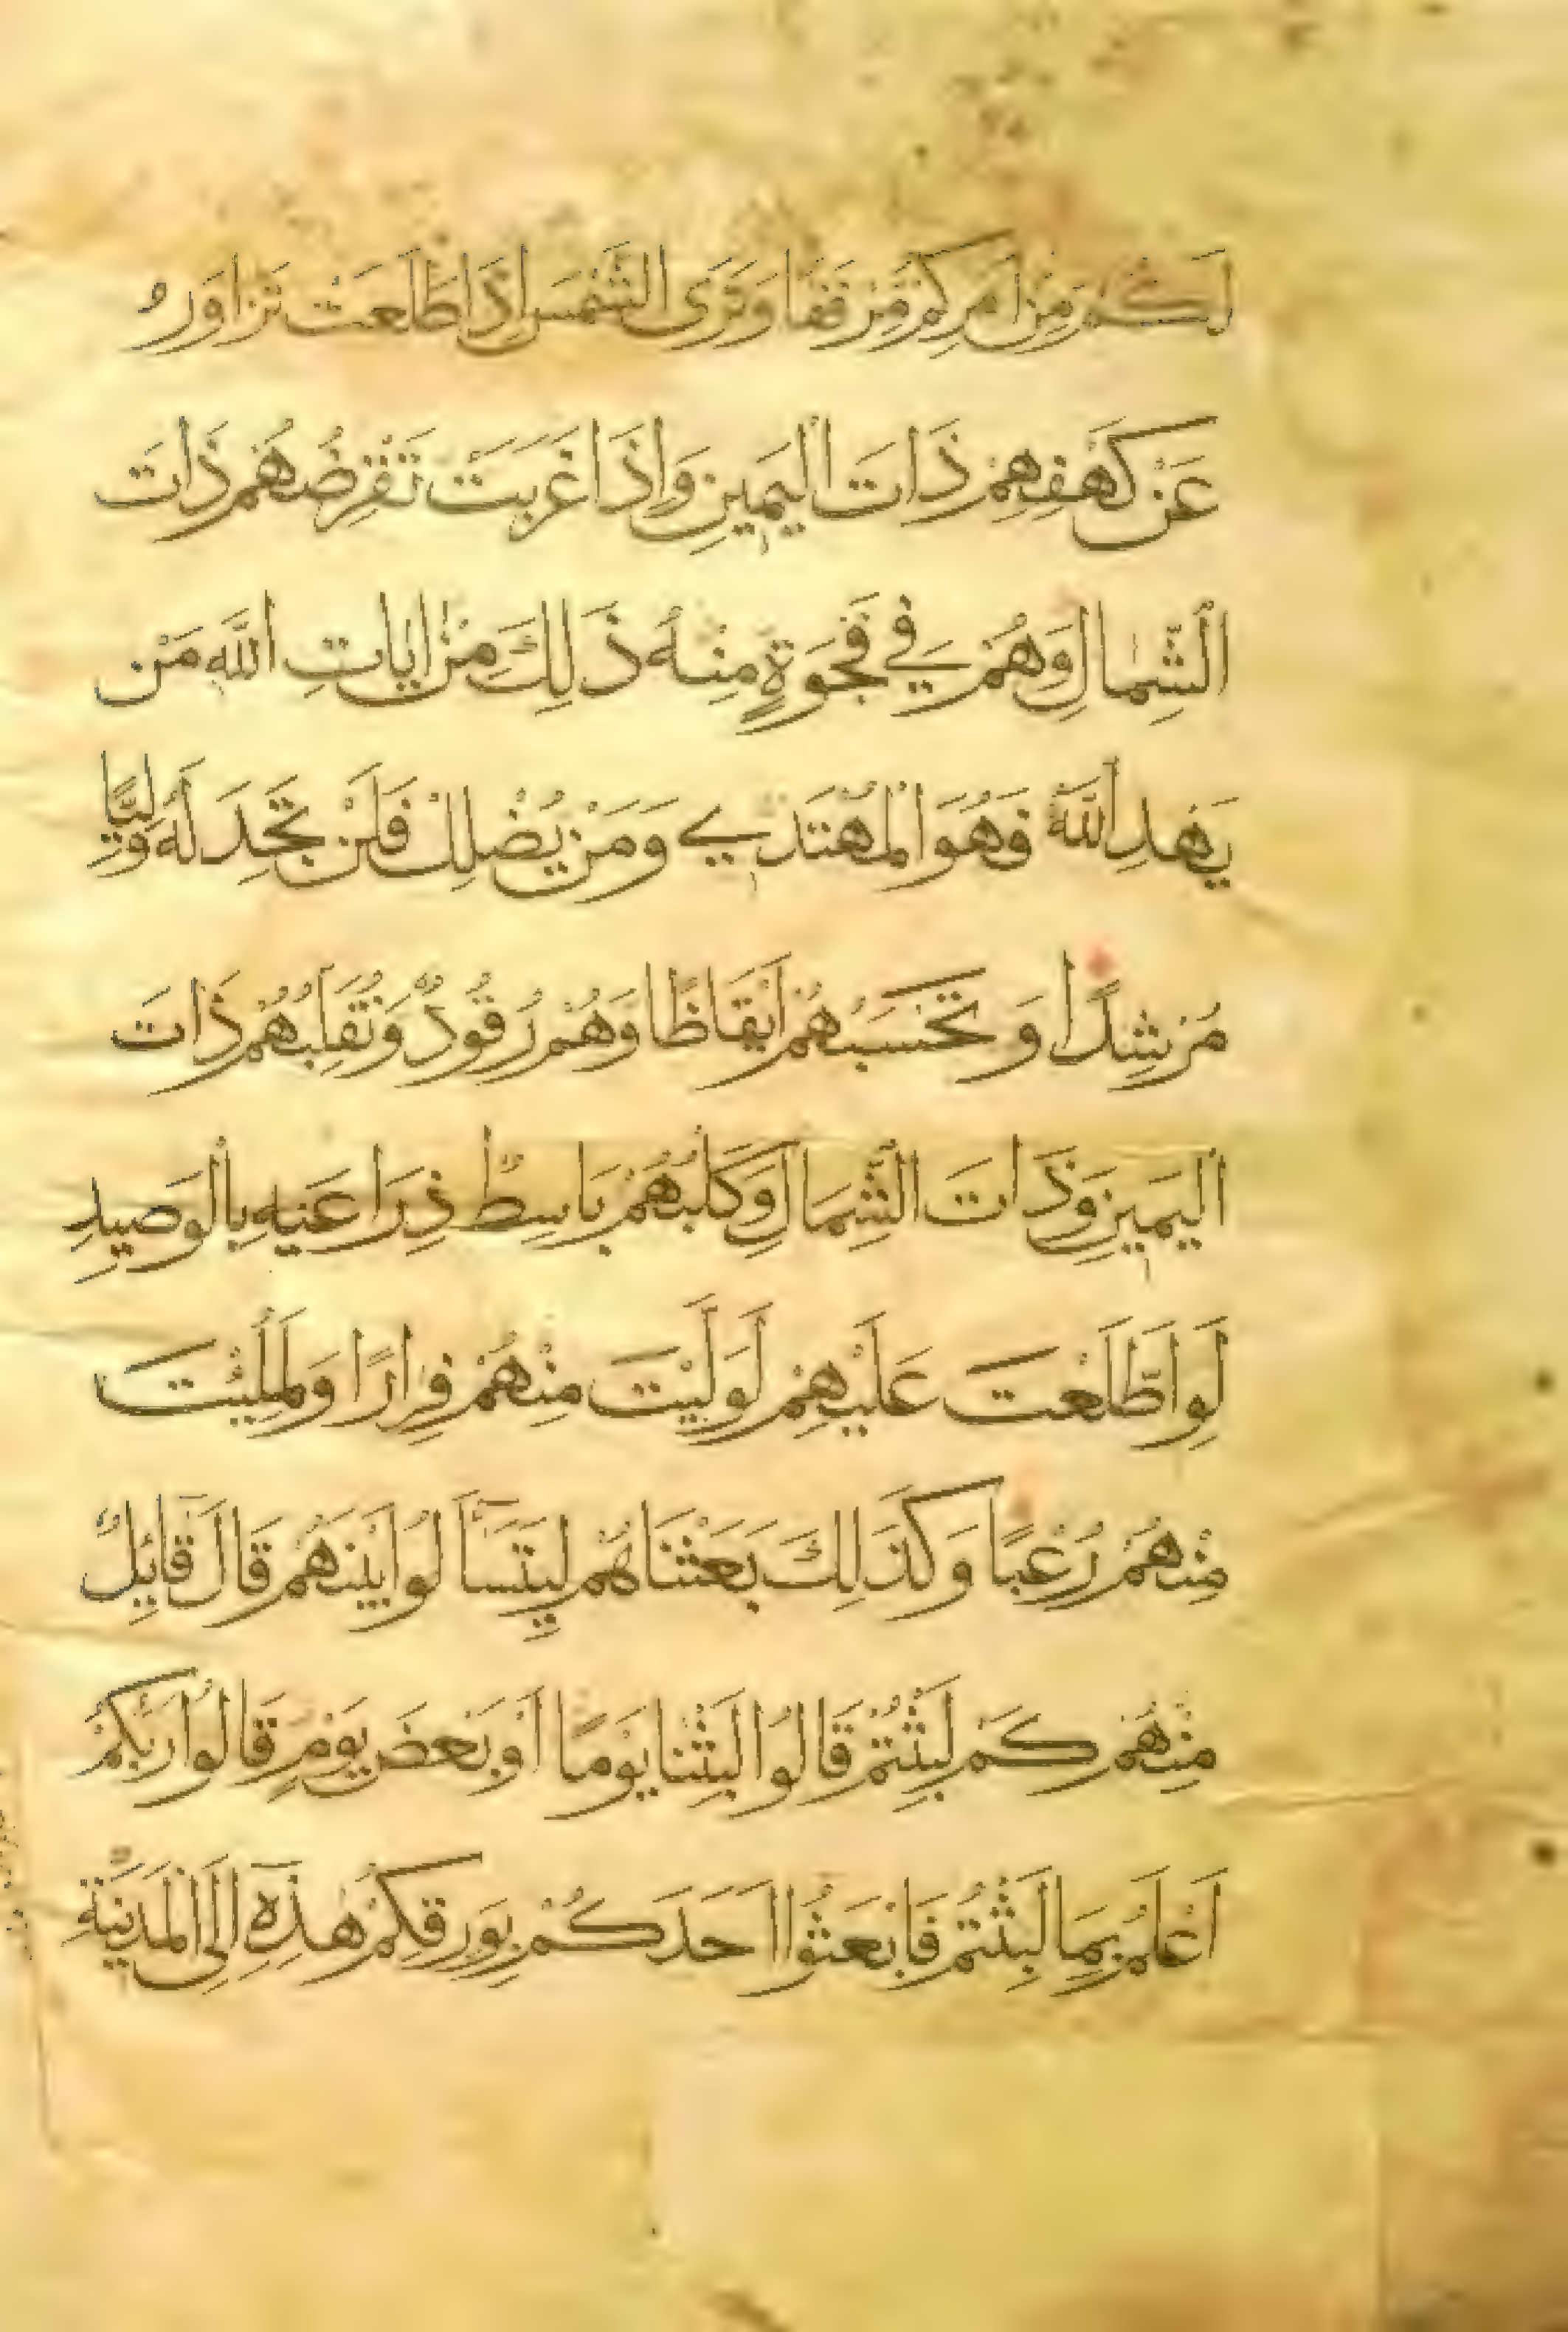 لَكُم مِنْ اَمْرِكُمْ مِرْفَقًا وَتَرَى الشَّمْسَ اِذَا طَلَعَتْ تَزَاوَرُ
عَنْ كَهْفِهِمْ ذَاتَ الْيَمِينِ وَاِذَا غَرَبَتْ تَقْرِضُهُمْ ذَاتَ
الشِّمَالِ وَهُمْ فِي فَجْوَةٍ مِنْهُ ذَلِكَ مِنْ اٰيَاتِ اللَّهِ مَنْ
يَهْدِ اللَّهُ فَهُوَ الْمُهْتَدِي وَمَنْ يُضْلِلْ فَلَنْ تَجِدَ لَهُ وَلِيًّا
مُرْشِدًا وَتَحْسَبُهُمْ اَيْقَاظًا وَهُمْ رُقُودٌ وَنُقَلِّبُهُمْ ذَاتَ
الْيَمِينِ وَذَاتَ الشِّمَالِ وَكَلْبُهُمْ بَاسِطٌ ذِرَاعَيْهِ بِالْوَصِيدِ
لَوِ اطَّلَعْتَ عَلَيْهِمْ لَوَلَّيْتَ مِنْهُمْ فِرَارًا وَلَمُلِئْتَ
مِنْهُمْ رُعْبًا وَكَذَلِكَ بَعَثْنَاهُمْ لِيَتَسَآأَلُوا بَيْنَهُمْ قَالَ قَائِلٌ
مِنْهُمْ كَمْ لَبِثْتُمْ قَالُوا لَبِثْنَا يَوْمًا اَوْ بَعْضَ يَوْمٍ قَالُوا رَبُّكُمْ
اَعْلَمُ بِمَا لَبِثْتُمْ فَابْعَثُوا اَحَدَكُمْ بِوَرِقِكُمْ هٰذِهِ اِلَى الْمَدِينَةِ